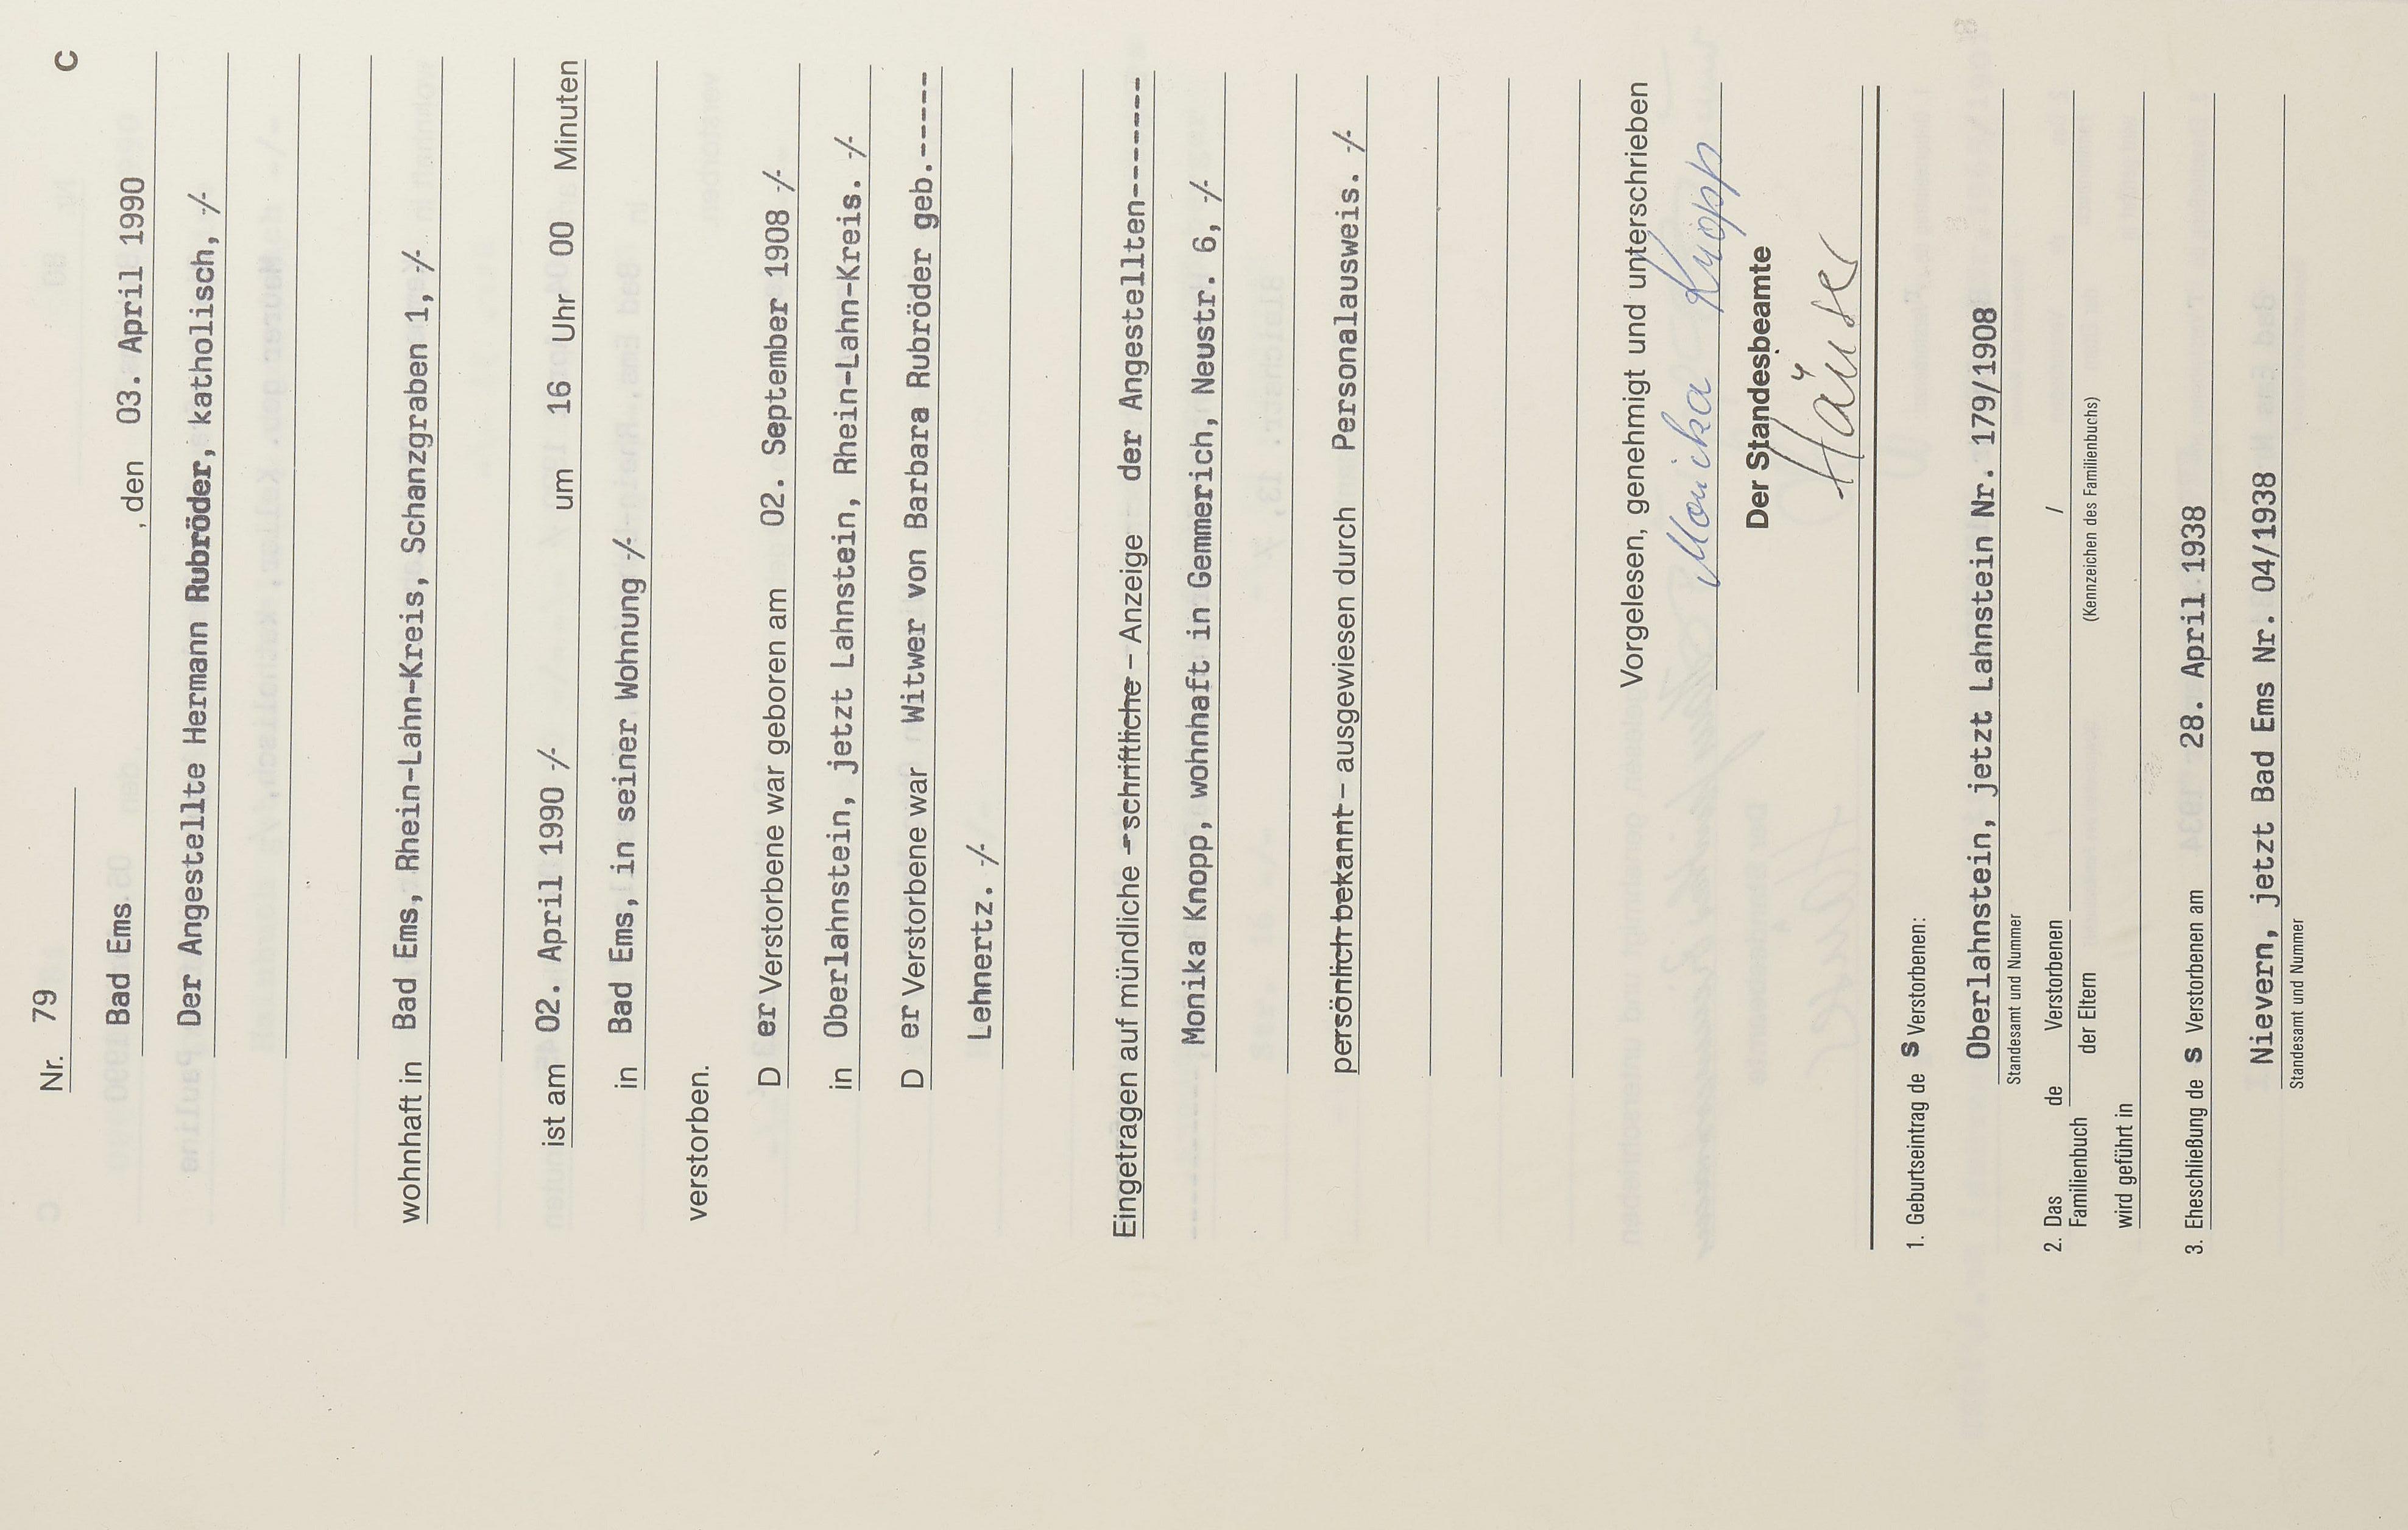 Nr. 79 C
Bad Ems , den 03. April 1990
Der Angestellte Hermann Rubröder, katholisch, -/-
wohnhaft in Bad Ems, Rhein-Lahn-Kreis, Schanzgraben 1, -/-
ist am 02. April 1990 -/- um 16 Uhr 00 Minuten
in Bad Ems, in seiner Wohnung -/-
verstorben.
D er Verstorbene war geboren am 02. September 1908 -/-
in Oberlahnstein, jetzt Lahnstein, Rhein-Lahn-Kreis. -/-
D er Verstorbene war Witwer von Barbara Rubröder geb.------
Lehnertz. -/-
Eingetragen auf mündliche – schriftliche – Anzeige der Angestellten--------
Monika Knopp, wohnhaft in Gemmerich, Neustr. 6, -/-
persönlich bekannt – ausgewiesen durch Personalausweis. -/-
Vorgelesen, genehmigt und unterschrieben
Monika Knopp
Der Standesbeamte
Häuser
1. Geburtseintrag de s Verstorbenen:
Oberlahnstein, jetzt Lahnstein Nr. 179/1908
Standesamt und Nummer
2. Das Familienbuch de Verstorbenen /
der Eltern (Kennzeichen des Familienbuchs)
wird geführt in
3. Eheschließung de s Verstorbenen am 28. April 1938
Nievern, jetzt Bad Ems Nr. 04/1938
Standesamt und Nummer